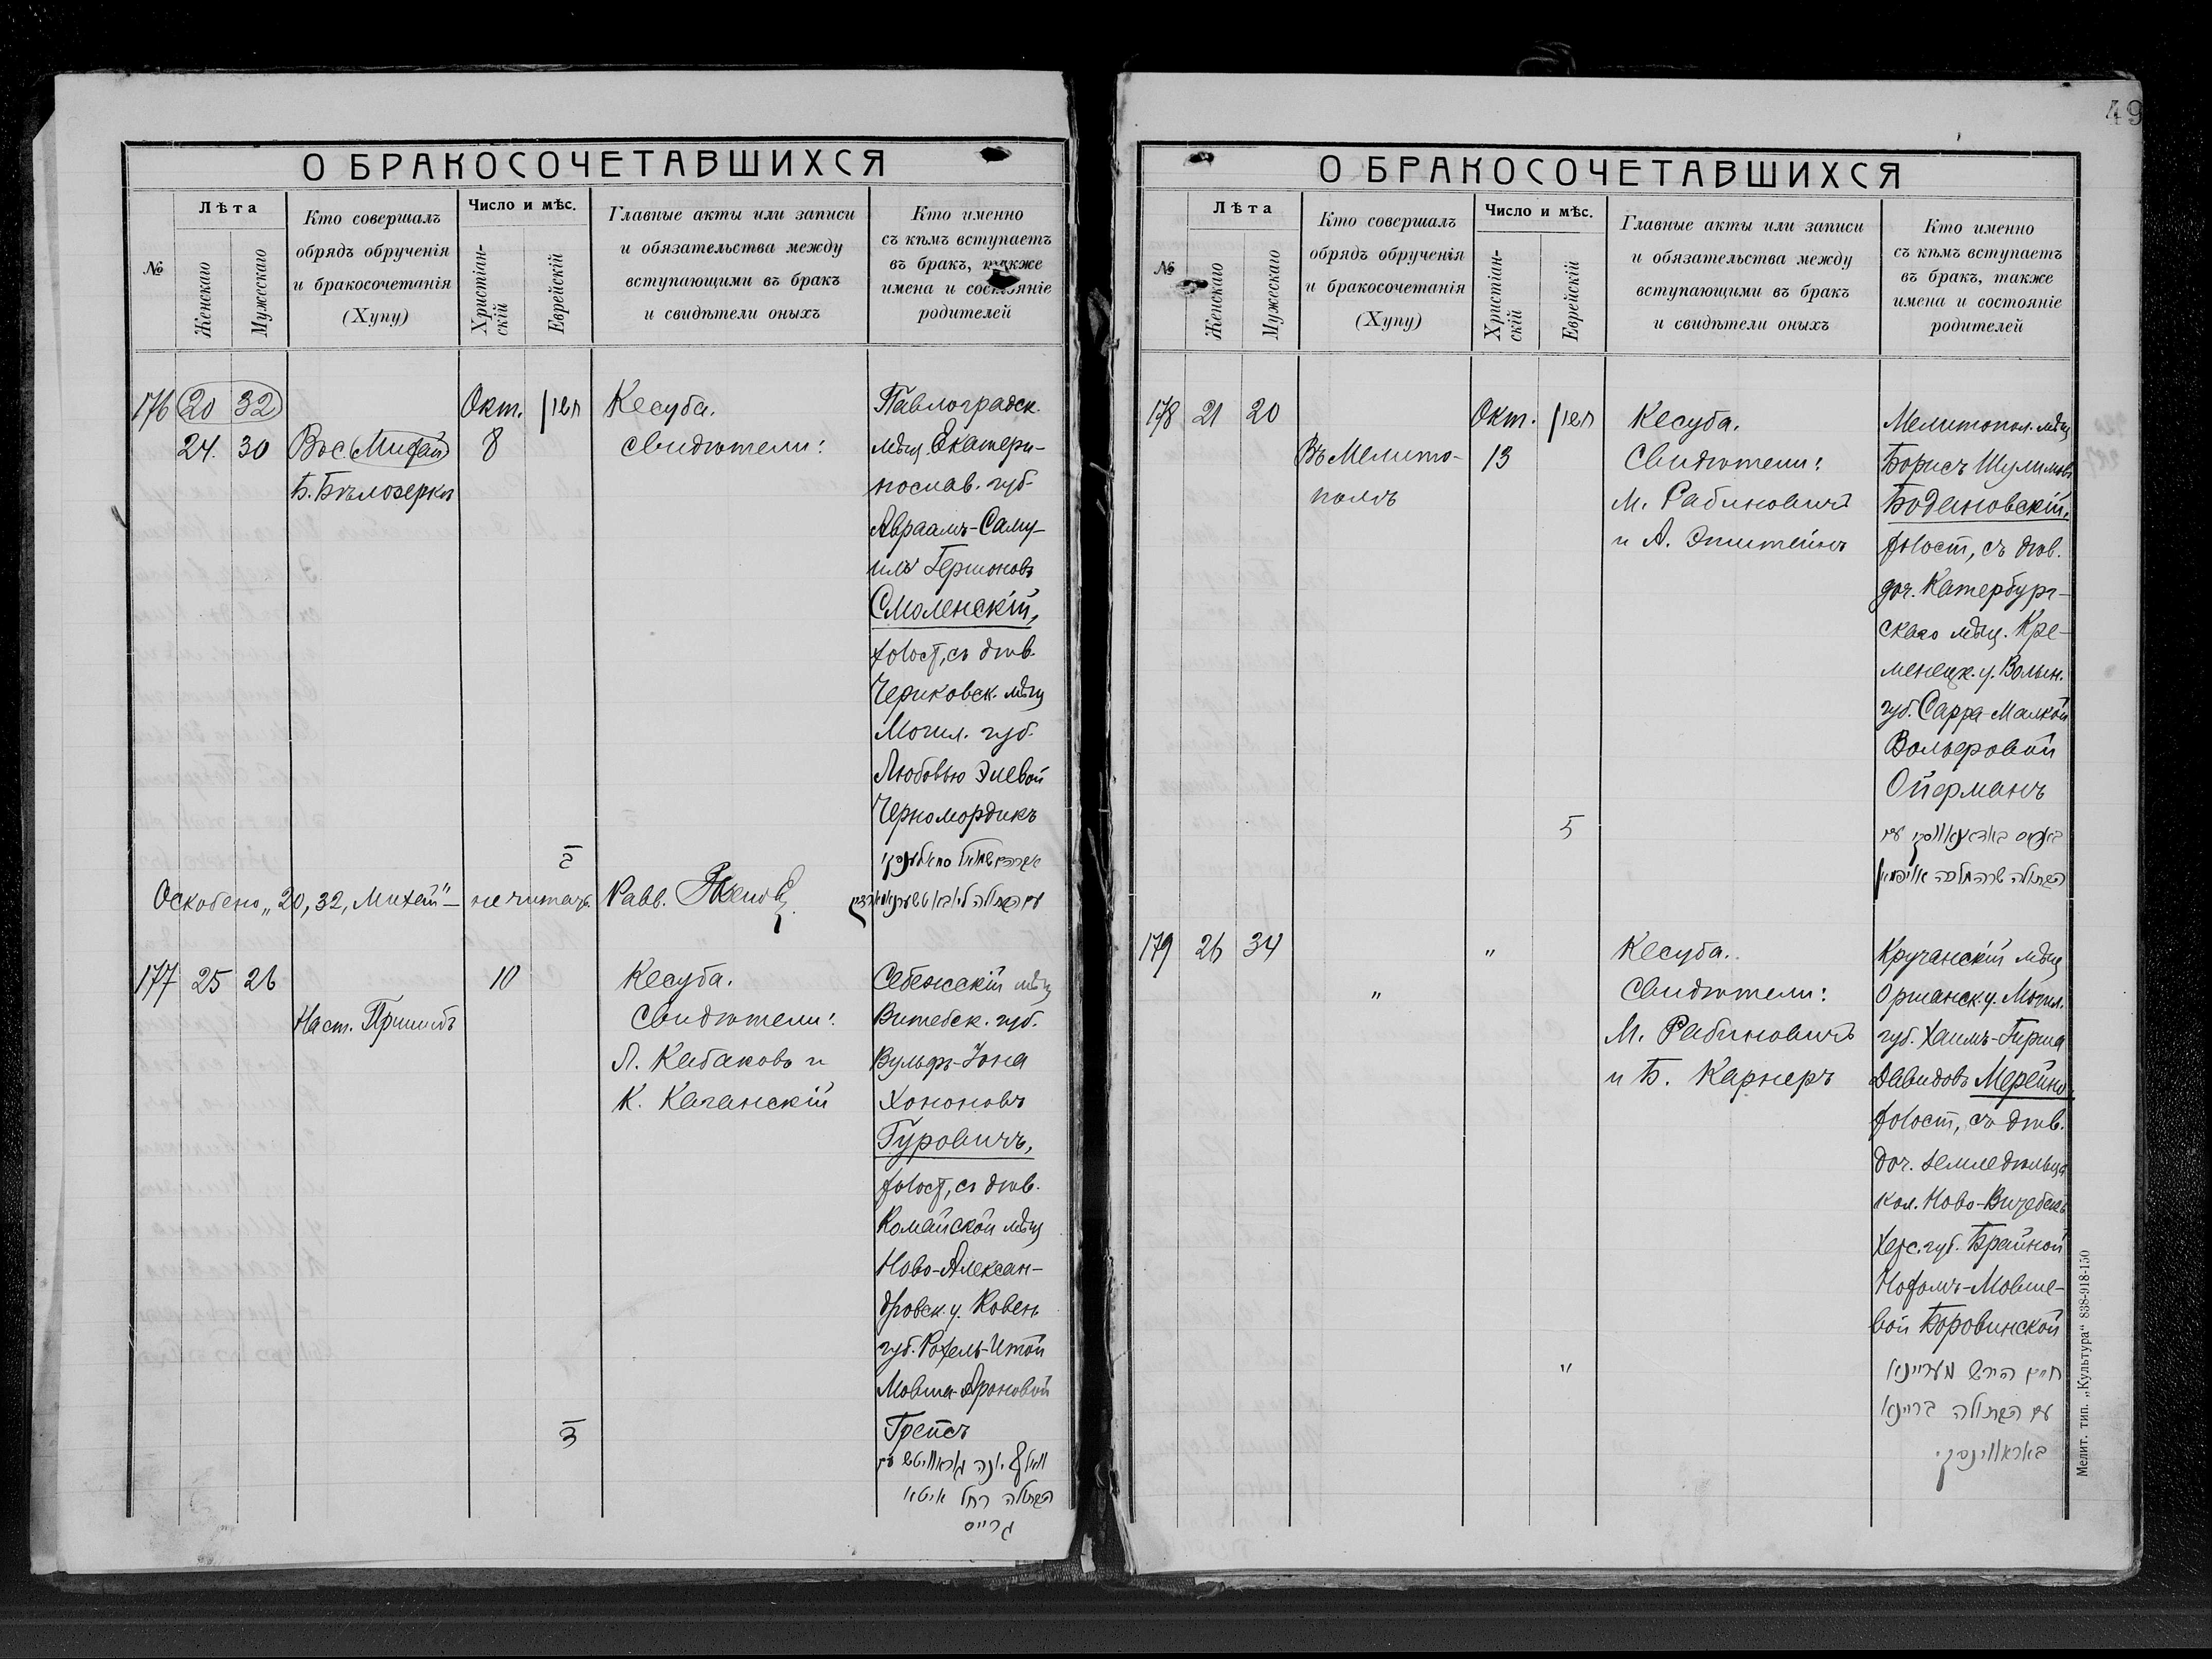 О БРАКОСОЧЕТАВШИХСЯ
№
Лѣта
Женскаго
Мужескаго
Кто совершалъ
обрядъ обрученія
и бракосочетанія
(Хупу)
Число и мѣс.
Христіан-
скій
Еврейскій
Главные акты или записи
и обязательства между
вступающими въ бракъ
и свидѣтели оныхъ
Кто именно
съ кѣмъ вступаетъ
въ бракъ, также
имена и состояніе
родителей
176 20 32
24. 30
Вас. Михай
Б. Бѣлозерка
Окт.
8
Кесуба.
Свидѣтели:
Павлоградск.
мѣщ. Екатери-
нослав. губ.
Авраамъ-Саму-
илъ Гершоновъ
Смоленскій,
холост, съ дѣв.
Чериковск. мѣщ
Могил. губ.
Любовью Элевой
Черномордикъ
Оскоблено „20, 32, Михай" – не читать.
Равв.
177 25 26
Наст. Пришибъ
10
Кесуба.
Свидѣтели:
Л. Кабаковъ и
К. Каганскій
Себежскій мѣщ
Витебск. губ.
Вульфъ-Іона
Хононовъ
Гуровичъ,
холост, съ дѣв.
Комайской мѣщ
Ново-Алексан-
дровск. у. Ковен.
губ. Рохель-Итой
Мовша-Ароновой
Грейсъ
הבתולה רחל איטא
גרייס
49
О БРАКОСОЧЕТАВШИХСЯ
№
Лѣта
Женскаго
Мужескаго
Кто совершалъ
обрядъ обрученія
и бракосочетанія
(Хупу)
Число и мѣс.
Христіан-
скій
Еврейскій
Главные акты или записи
и обязательства между
вступающими въ бракъ
и свидѣтели оныхъ
Кто именно
съ кѣмъ вступаетъ
въ бракъ, также
имена и состояніе
родителей
178 21 20
Въ Мелито-
полѣ
Окт.
13
Кесуба.
Свидѣтели:
М. Рабиновичъ
и А. Эпштейнъ
Мелитопол. мѣщ
Борисъ Шулимовъ
холост, съ дѣв.
доч. Катербург-
скаго мѣщ. Кре-
менецк. у. Волын.
губ. Сарра-Малкой
Вольфовой
Ойерманъ
179 26 34
"
"
Кесуба.
Свидѣтели:
М. Рабиновичъ
и Б. Карнеръ
Кручанскій мѣщ
Оршанск. у. Могил.
губ. Хаимъ-Гирша
Давидовъ Мерейно,
холост, съ дѣв.
доч. земледѣльца
кол. Ново-Витебскъ
Херс. губ. Брайной
Нохомъ-Мовше-
вой Боровинской
"
חיים הירש מעריינא
עם הבתולה בריינא
באראווינסקי
Мелит. тип. „Культура" 838-918-150